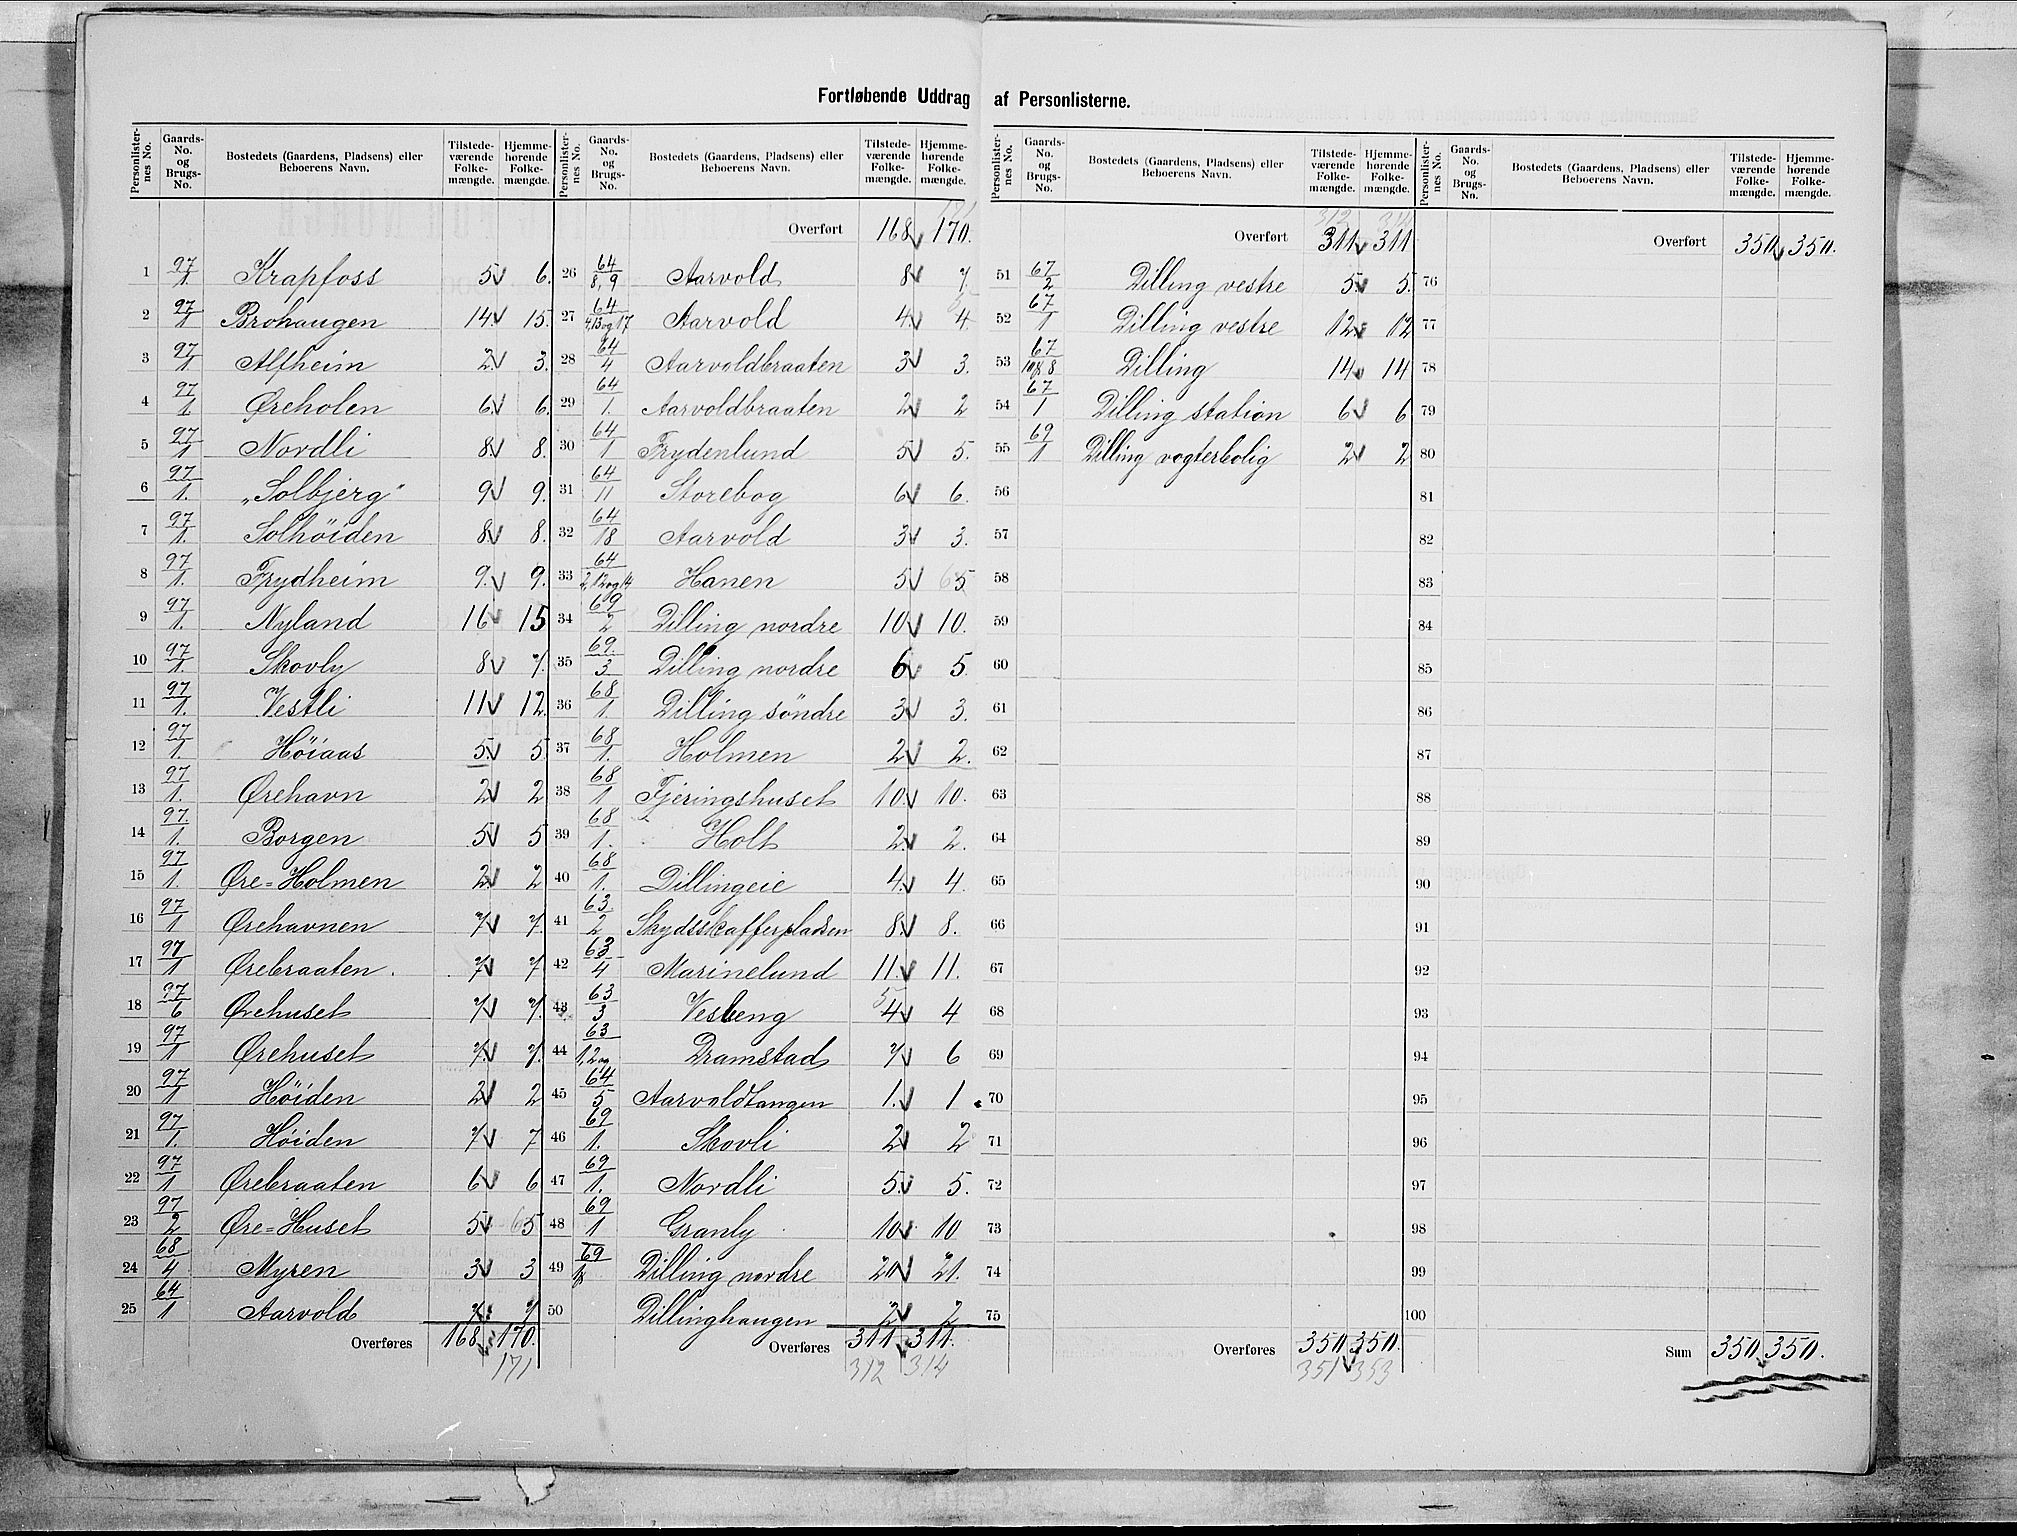 Fortløbende Uddrag af Personlisterne.
Personlisternes No. | Gaards-No. og Brugs-No. | Bostedets (Gaardens, Pladsens) eller Beboerens Navn. | Tilstedeværende Folkemængde. | Hjemmehørende Folkemængde.
1 97/1 Krapfoss 5 6.
2 97/1 Brohaugen 14 15.
3 97/1 Alfheim 2 3.
4 97/1. Øreholen 6 6.
5 97/1 Nordli 8 8.
6 97/1. „Solbjerg" 9 9.
7 97/1. Solhöiden 8 8.
8 97/1. Frydheim 9. 9.
9 97/1. Nyland 16 15
10 97/1. Skovly 8 7.
11 97/1. Vestli 11 12
12 97/1. Höiaas 5 5
13 97/1. Ørehavn 2 2
14 97/1. Borgen 5 5
15 97/1. Øre=Holmen 2 2
16 97/1 Ørehavnen 7 7.
17 97/1 Ørebraaten. 7 7.
18 97/6 Ørehuset 7 7.
19 97/1 Ørehuset 7. 7.
20 97/1 Höiden 2 2
21 97/1. Höiden 7 7
22 97/1 Ørebraaten 6 6
23 97/2 Øre=Huset 5 5
24 68/4 Myren 3 3
25 64/1 Aarvold 7 7
Overføres 168 170.
171
Personlisternes No. | Gaards-No. og Brugs-No. | Bostedets (Gaardens, Pladsens) eller Beboerens Navn. | Tilstedeværende Folkemængde. | Hjemmehørende Folkemængde.
Overført 168 170.
26 64/8,9 Aarvold 8 7.
27 64/4,13og17 Aarvold 4 4.
28 64/4 Aarvoldbraaten 3 3.
29 64/1. Aarvoldbraaten 2 2
30 64/1 Frydenlund 5 5.
31 64/11 Storebog 6 6.
32 64/18 Aarvold 3 3.
33 64/2,12og14 Hanen 5 5
34 69/2 Dilling nordre 10 10.
35 69/3 Dilling nordre 6 5.
36 68/1. Dilling söndre 3 3.
37 68/1. Holmen 2 2.
38 68/1 Fjeringshuset 10 10.
39 68/1. Holt 2 2.
40 68/1. Dillingeie 4 4.
41 63/2 Skydsskafferpladsen 8 8.
42 63/4 Marinelund 11. 11.
43 63/3 Vesleng 5 4 4
44 63/1,2og Dramstad 7 6
45 64/5 Aarvoldtangen 1. 1
46 69/1. Skovli 2 2
47 69/1. Nordli 5 5.
48 69/1 Granly 10 10
49 69/18 Dilling nordre 20 21.
50 Dillinghaugen 2 2
Overføres 311 311.
312 314
Personlisternes No. | Gaards-No. og Brugs-No. | Bostedets (Gaardens, Pladsens) eller Beboerens Navn. | Tilstedeværende Folkemængde. | Hjemmehørende Folkemængde.
312 314
Overført 311 311
51 67/2 Dilling vestre 5 5.
52 67/1 Dilling vestre 12 12
53 67 Dilling 14 14
54 67/1 Dilling station 6 6
55 69/1 Dilling vogterbolig 2 2
56
57
58
59
60
61
62
63
64
65
66
67
68
69
70
71
72
73
74
75
Overføres 350 350.
351 353
Personlisternes No. | Gaards-No. og Brugs-No. | Bostedets (Gaardens, Pladsens) eller Beboerens Navn. | Tilstedeværende Folkemængde. | Hjemmehørende Folkemængde.
Overført 350 350.
76
77
78
79
80
81
82
83
84
85
86
87
88
89
90
91
92
93
94
95
96
97
98
99
100
Sum 350 350.